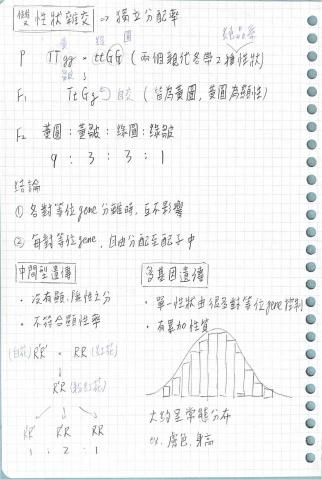 雙性狀雜交 ⇒ 獨立分配率
純品系
黃 綠 圓
P TTgg × ttGG (兩個親代各带2種性狀)
皺
F₁ TtGg 自交 (皆為黃圓,黃圓為顯性)
F₂ 黃圓:黃皺:綠圓:綠皺
9 : 3 : 3 : 1
結論
① 各對等位gene分離時,互不影響
② 每對等位gene,自由分配至配子中
中間型遺傳
・沒有顯、隱性之分
・不符合顯性率
(白花) R'R' × RR (紅花)
R'R (粉紅花)
R'R' R'R RR
1 : 2 : 1
多基因遺傳
・單一性狀由很多對等位gene控制
・有累加性質
大約呈常態分布
ex. 膚色、身高